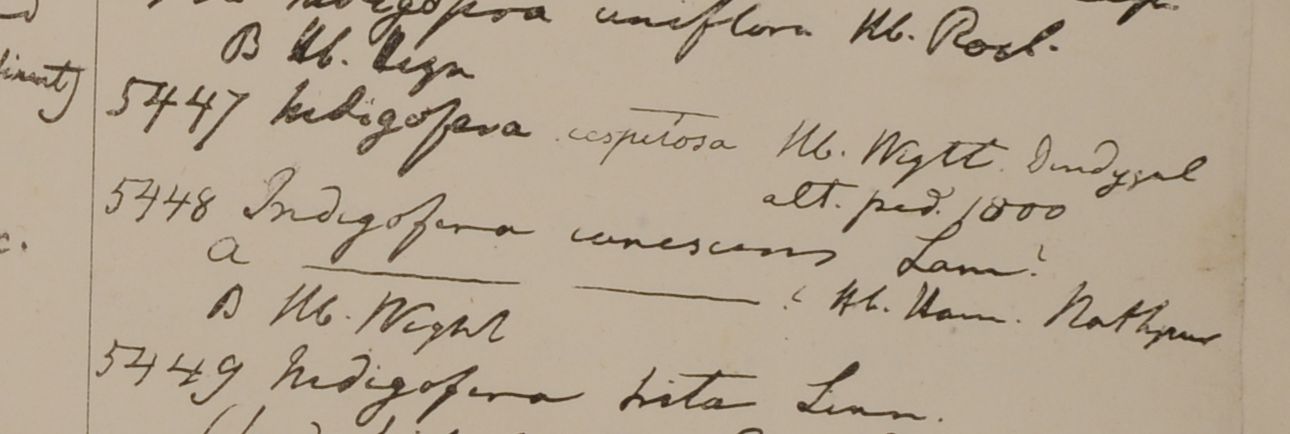 Indigofera uniflora Hb. Roxb.
B Hb. Heyn
diment)
5447 Indigofera cespitosa Hb. Wight. Dindygul
alt. ped. 1800
5448 Indigofera canescens Lam?
c.
a ——— ———? Hb. Ham. Nathpur
B Hb. Wight
5449 Indigofera hirta Linn.